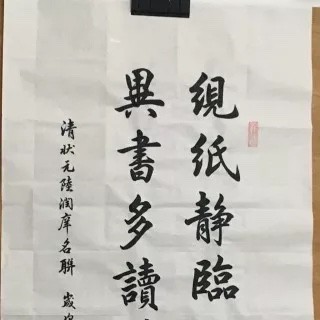 絸紙静臨
異書多讀
清状元陸潤庠名聯 歲